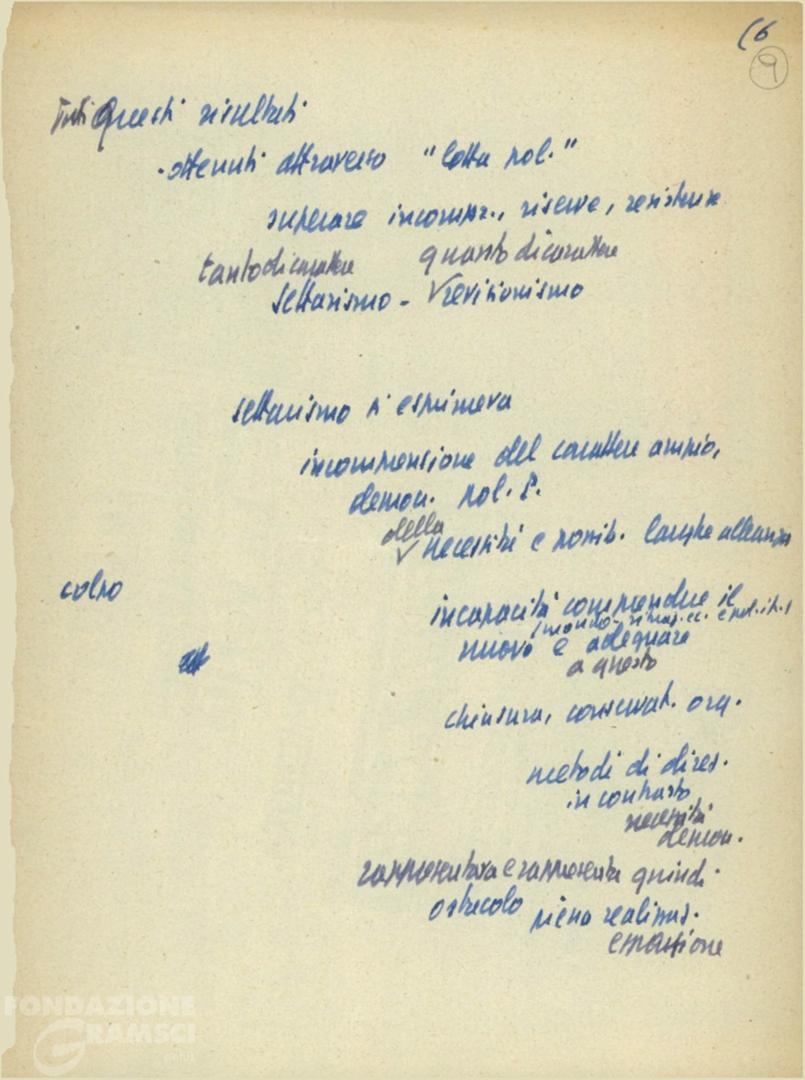 (6
9
Tutti Questi risultati
ottenuti attraverso "lotta pol."
superare incompr., riserve, resistenze
tanto di carattere quanto di carattere
settarismo - revisionismo
settarismo si esprimeva
incomprensione del carattere ampio,
democr. pol. P.
della
necessità e possib. larghe alleanze
colpo
incapacità comprendere il
(mondo -
nuovo e adeguare
a questo
chiusura, conservat. org.
metodi di direz.
in contrasto
necessità
democr.
rappresentava e rappresenta quindi
ostacolo piena realizzaz.
espansione
FONDAZIONE
GRAMSCI